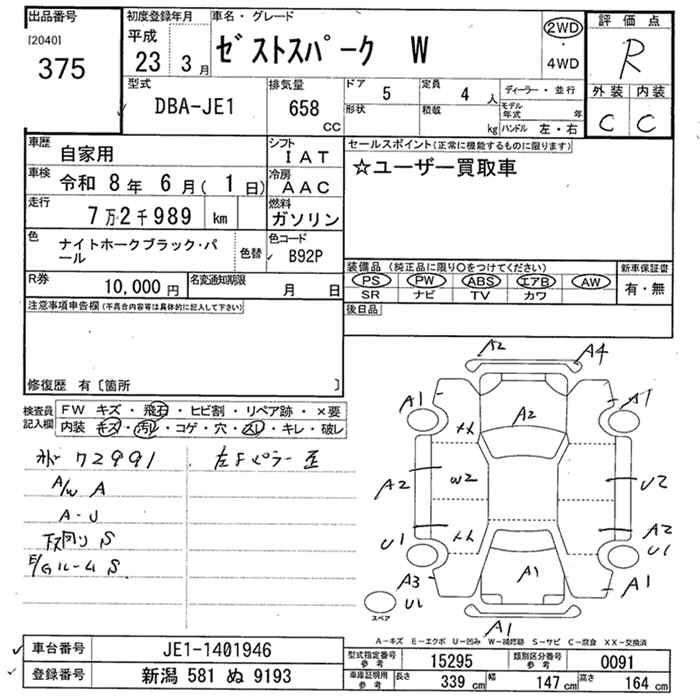 出品番号
[2040]
375
初度登録年月
平成
23 3月
車名・グレード
ｾﾞｽﾄｽﾊﾟｰｸ W
2WD
・
4WD
評価点
R
外装 内装
C C
型式
DBA-JE1
排気量
658
CC
ドア 5
定員 4 人
形状
積載 kg
ディーラー・並行
モデル年式 年
ハンドル 左・右
車歴 自家用
シフト IAT
車検 令和 8年 6月( 1日)
冷房 AAC
走行 7万2千989 km
燃料 ガソリン
色 ナイトホークブラック・パール
色替
色コード B92P
R券 10,000 円
名変通知期限 月 日
セールスポイント(正常に機能するものに限ります)
☆ユーザー買取車
装備品 (純正品に限り○をつけてください)
PS PW ABS エアB AW
SR ナビ TV カワ
新車保証書
有・無
後日品
注意事項申告欄(不具合内容等は具体的に記入して下さい)
修復歴 有〔箇所 〕
検査員記入欄
FW キズ・飛石・ヒビ割・リペア跡・×要
内装 キズ・汚レ・コゲ・穴・スレ・キレ・破レ
72991
A/W A
A-U
下回り S
E/Gルーム S
左Fピラー歪
A2 A4
A1 A1
A2
A2 W2 U2
A2
U1 U1
A3 A1 A1
U1
A1
スペア
A-キズ E-エクボ U-凹み W-補修跡 S-サビ C-腐食 XX-交換済
車台番号 JE1-1401946
登録番号 新潟 581 ぬ 9193
型式指定番号 参考 15295
類別区分番号 参考 0091
車庫証明用 参考 長さ 339 cm 幅 147 cm 高さ 164 cm